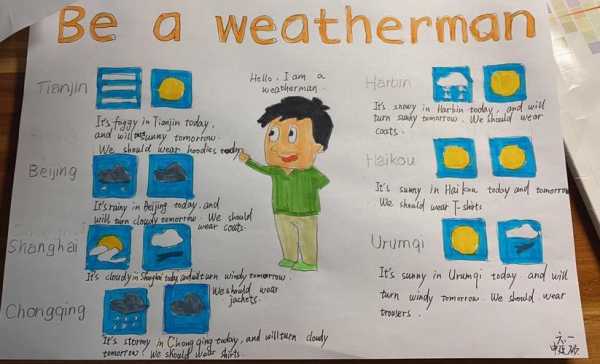 Be a weatherman
Hello, I am a
weatherman.
Tianjin
It's foggy in Tianjin today,
and will sunny tomorrow.
We should wear hoodies
Beijing
It's rainy in Beijing today, and
will turn cloudy tomorrow. We should
wear coats.
Shanghai
It's cloudy in Shanghai today and will turn windy tomorrow.
We should wear
jackets.
Chongqing
It's stormy in Chongqing today, and will turn cloudy
tomorrow. We should wear shirts
Harbin
It's snowy in Harbin today, and will
turn sunny tomorrow. We should wear
coats.
Haikou
It's sunny in Haikou today and tomorrow
We should wear T-shirts
Urumqi
It's sunny in Urumqi today and will
turn windy tomorrow. We should wear
trousers.
六一